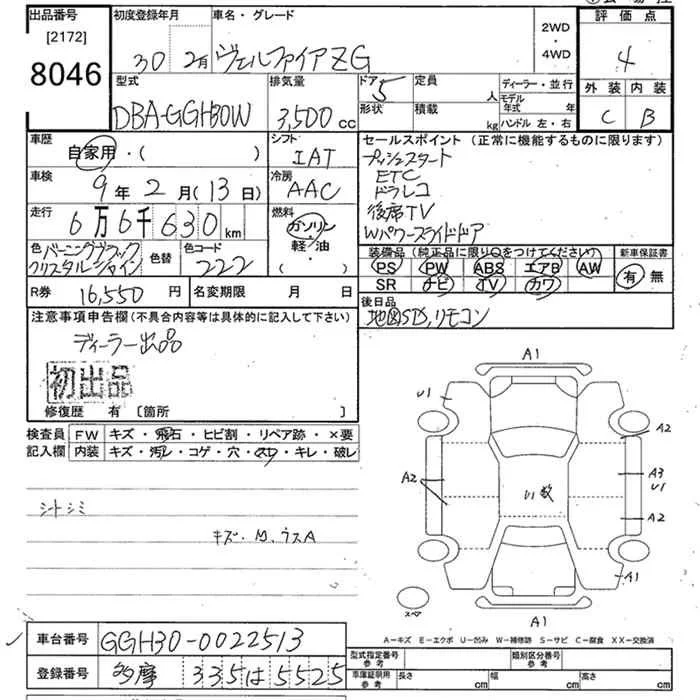 出品番号
[2172]
8046
初度登録年月
30 2月
車名・グレード
ヴェルファイアZG
2WD
・
4WD
評価点
4
型式
DBA-GGH30W
排気量
3,500cc
ドア
5
形状
定員
人
積載
kg
ディーラー・並行
モデル年式 年
ハンドル 左・右
外装 内装
C B
車歴
自家用・( )
シフト
IAT
車検
9年2月(13日)
冷房
AAC
走行
6万6千630km
燃料
ガソリン
軽・油
( )
色
バーニングブラック
クリスタルシャイン
色替
色コード
222
R券 16,550円
名変期限 月 日
セールスポイント(正常に機能するものに限ります)
プッシュスタート
ETC
ドラレコ
後席TV
Wパワースライドドア
装備品(純正品に限り○をつけてください)
新車保証書
PS PW ABS エアB AW
有 無
SR ナビ TV カワ
後日品
地図SD,リモコン
注意事項申告欄(不具合内容等は具体的に記入して下さい)
ディーラー出品
初出品
修復歴 有 [箇所 ]
検査員
記入欄
FW キズ・飛石・ヒビ割・リペア跡・×要
内装 キズ・汚レ・コゲ・穴・スレ・キレ・破レ
シートシミ
キズ・M.ウスA
A1
U1
A2
A2
A3
U1
U1 数
A2
A1
スペア
A1
A－キズ E－エクボ U－凹み W－補修跡 S－サビ C－腐食 XX－交換済
車台番号 GGH30-0022513
登録番号 多摩 335 は 5525
型式指定番号
参考
類別区分番号
参考
車庫証明用
参考
長さ cm 幅 cm 高さ cm